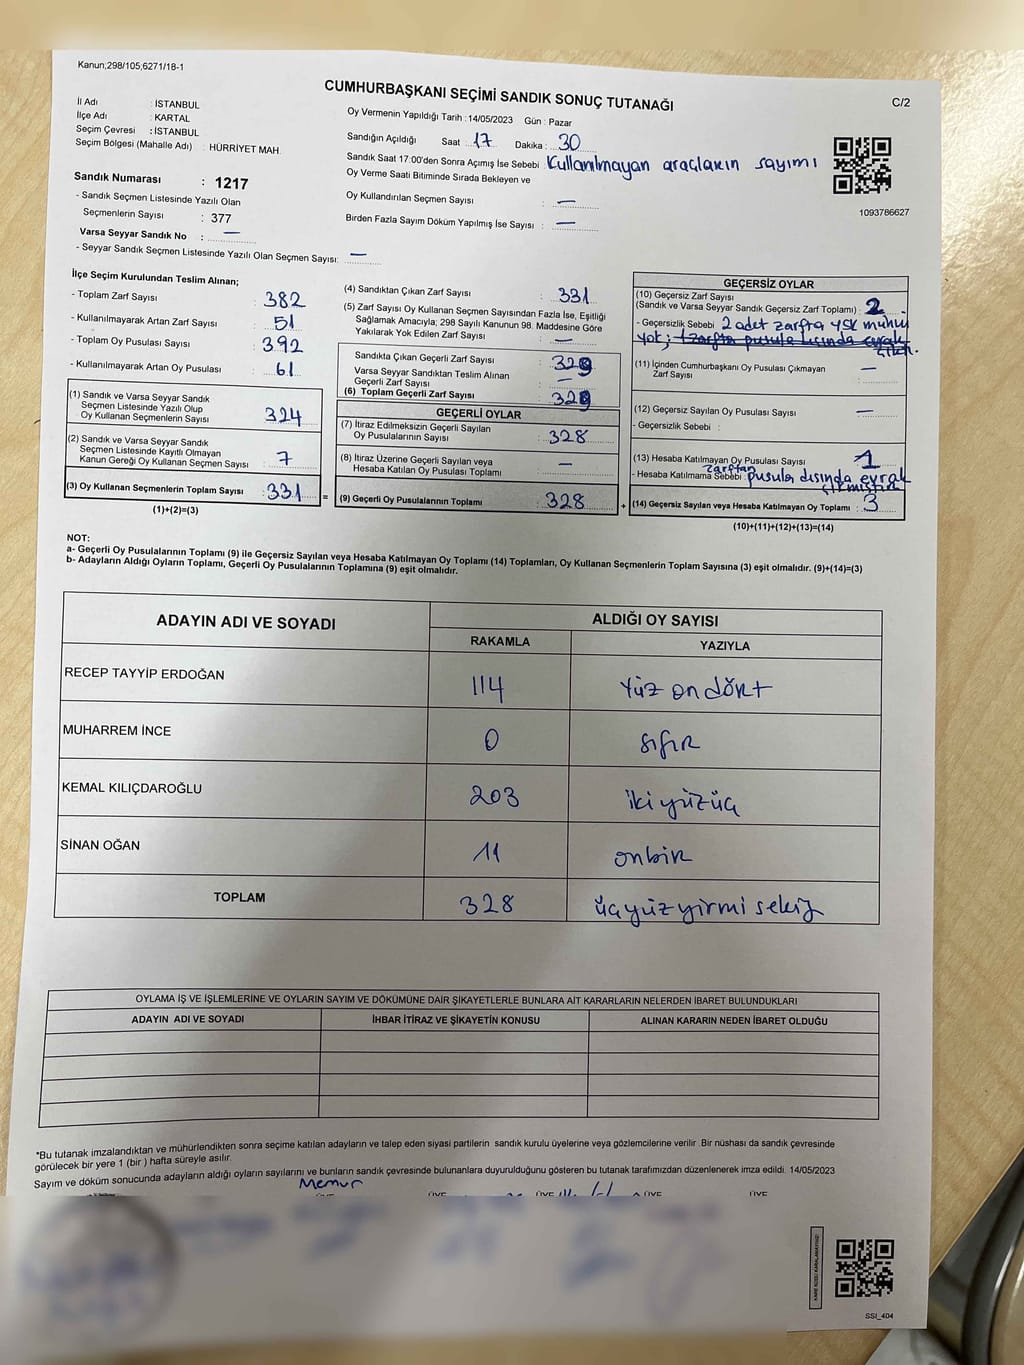 Kanun;298/105,6271/18-1
CUMHURBAŞKANI SEÇİMİ SANDIK SONUÇ TUTANAĞI
C/2
İl Adı : İSTANBUL
İlçe Adı : KARTAL
Seçim Çevresi : İSTANBUL
Seçim Bölgesi (Mahalle Adı) : HÜRRİYET MAH.
Sandık Numarası : 1217
- Sandık Seçmen Listesinde Yazılı Olan
Seçmenlerin Sayısı : 377
Varsa Seyyar Sandık No : —
- Seyyar Sandık Seçmen Listesinde Yazılı Olan Seçmen Sayısı: —
Oy Vermenin Yapıldığı Tarih : 14/05/2023 Gün : Pazar
Sandığın Açıldığı Saat : 17 Dakika : 30
Sandık Saat 17:00'den Sonra Açımış İse Sebebi : Kullanılmayan araçların sayımı
Oy Verme Saati Bitiminde Sırada Bekleyen ve
Oy Kullandırılan Seçmen Sayısı : —
Birden Fazla Sayım Döküm Yapılmış İse Sayısı : —
1093786627
İlçe Seçim Kurulundan Teslim Alınan;
- Toplam Zarf Sayısı : 382
- Kullanılmayarak Artan Zarf Sayısı : 51
- Toplam Oy Pusulası Sayısı : 392
- Kullanılmayarak Artan Oy Pusulası : 61
(1) Sandık ve Varsa Seyyar Sandık
Seçmen Listesinde Yazılı Olup
Oy Kullanan Seçmenlerin Sayısı : 324
(2) Sandık ve Varsa Seyyar Sandık
Seçmen Listesinde Kayıtlı Olmayan
Kanun Gereği Oy Kullanan Seçmen Sayısı : 7
(3) Oy Kullanan Seçmenlerin Toplam Sayısı : 331
(1)+(2)=(3)
(4) Sandıktan Çıkan Zarf Sayısı : 331
(5) Zarf Sayısı Oy Kullanan Seçmen Sayısından Fazla İse, Eşitliği
Sağlamak Amacıyla; 298 Sayılı Kanunun 98. Maddesine Göre
Yakılarak Yok Edilen Zarf Sayısı : —
Sandıkta Çıkan Geçerli Zarf Sayısı : 329
Varsa Seyyar Sandıktan Teslim Alınan
Geçerli Zarf Sayısı : —
(6) Toplam Geçerli Zarf Sayısı : 329
GEÇERLİ OYLAR
(7) İtiraz Edilmeksizin Geçerli Sayılan
Oy Pusulalarının Sayısı : 328
(8) İtiraz Üzerine Geçerli Sayılan veya
Hesaba Katılan Oy Pusulası Toplamı : —
= (9) Geçerli Oy Pusulalarının Toplamı : 328
GEÇERSİZ OYLAR
(10) Geçersiz Zarf Sayısı
(Sandık ve Varsa Seyyar Sandık Geçersiz Zarf Toplamı) : 2
- Geçersizlik Sebebi : 2 adet zarfta YSK mühü
yok; 1 zarfta pusula dışında evrak
(11) İçinden Cumhurbaşkanı Oy Pusulası Çıkmayan
Zarf Sayısı : —
(12) Geçersiz Sayılan Oy Pusulası Sayısı : —
- Geçersizlik Sebebi :
(13) Hesaba Katılmayan Oy Pusulası Sayısı : 1
- Hesaba Katılmama Sebebi : zarftan pusula dışında evrak
çıkmıştır
+ (14) Geçersiz Sayılan veya Hesaba Katılmayan Oy Toplamı : 3
(10)+(11)+(12)+(13)=(14)
NOT:
a- Geçerli Oy Pusulalarının Toplamı (9) ile Geçersiz Sayılan veya Hesaba Katılmayan Oy Toplamı (14) Toplamları, Oy Kullanan Seçmenlerin Toplam Sayısına (3) eşit olmalıdır. (9)+(14)=(3)
b- Adayların Aldığı Oyların Toplamı, Geçerli Oy Pusulalarının Toplamına (9) eşit olmalıdır.
ADAYIN ADI VE SOYADI ALDIĞI OY SAYISI
RAKAMLA YAZIYLA
RECEP TAYYİP ERDOĞAN 114 Yüz on dört
MUHARREM İNCE 0 sıfır
KEMAL KILIÇDAROĞLU 203 iki yüz üç
SİNAN OĞAN 11 onbir
TOPLAM 328 üç yüz yirmi sekiz
OYLAMA İŞ VE İŞLEMLERİNE VE OYLARIN SAYIM VE DÖKÜMÜNE DAİR ŞİKAYETLERLE BUNLARA AİT KARARLARIN NELERDEN İBARET BULUNDUKLARI
ADAYIN ADI VE SOYADI İHBAR İTİRAZ VE ŞİKAYETİN KONUSU ALINAN KARARIN NEDEN İBARET OLDUĞU
*Bu tutanak imzalandıktan ve mühürlendikten sonra seçime katılan adayların ve talep eden siyasi partilerin sandık kurulu üyelerine veya gözlemcilerine verilir .Bir nüshası da sandık çevresinde
görülecek bir yere 1 (bir ) hafta süreyle asılır.
Sayım ve döküm sonucunda adayların aldığı oyların sayılarını ve bunların sandık çevresinde bulunanlara duyurulduğunu gösteren bu tutanak tarafımızdan düzenlenerek imza edildi. 14/05/2023
Memur
ÜYE ÜYE ÜYE ÜYE ÜYE
SSİ_404